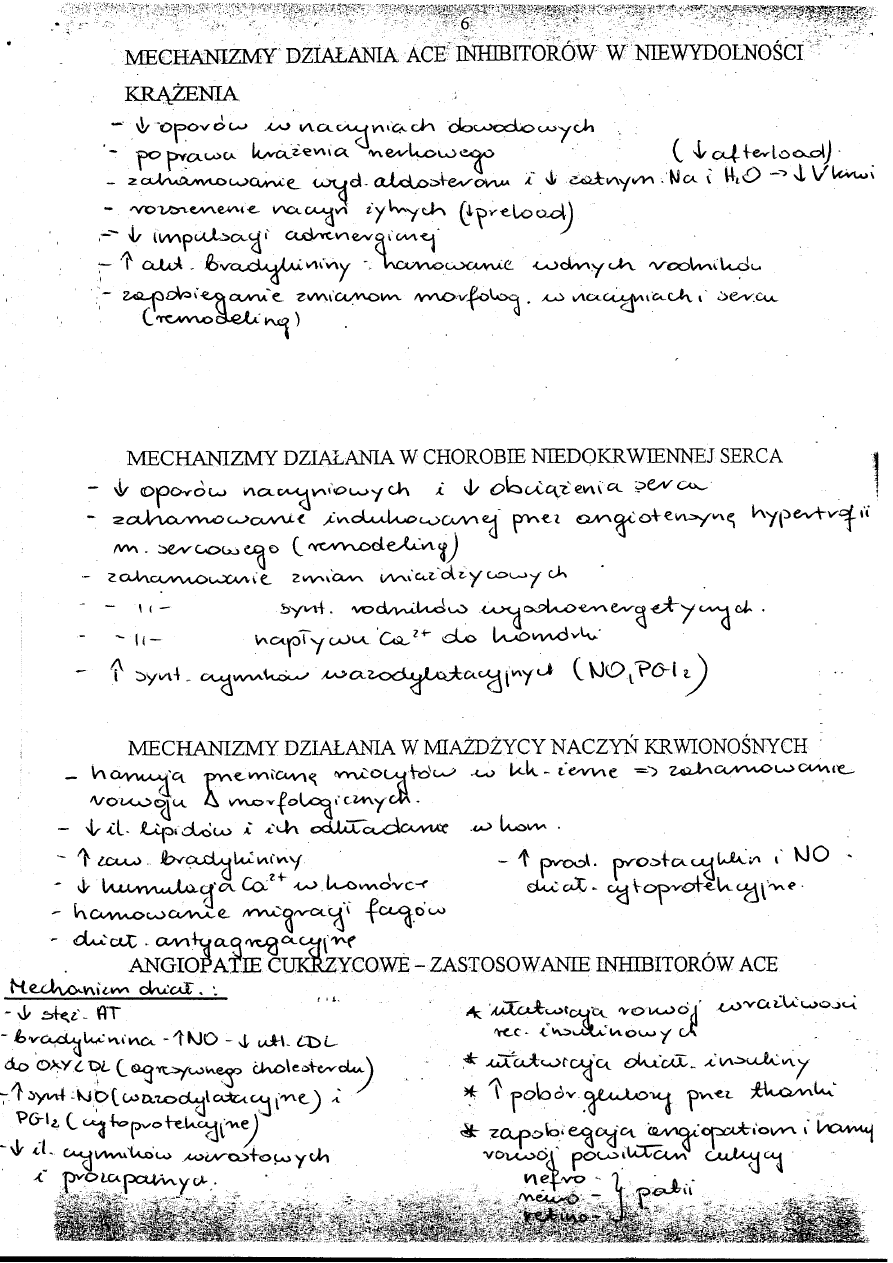 6
MECHANIZMY DZIAŁANIA ACE INHIBITORÓW W NIEWYDOLNOŚCI
KRĄŻENIA
- ↓ oporów w naczyniach obwodowych
- poprawa krążenia nerkowego (↓ afterload)
- zahamowanie wydz. aldosteronu i ↓ zatrzym. Na i H₂O → ↓ V krwi
- rozszerzenie naczyń żylnych (↓ preload)
- ↓ impulsacji adrenergicznej
- ↑ akt. bradykininy - hamowanie wolnych rodników
- zapobieganie zmianom morfolog. w naczyniach i sercu
(remodeling)
MECHANIZMY DZIAŁANIA W CHOROBIE NIEDOKRWIENNEJ SERCA
- ↓ oporów naczyniowych i ↓ obciążenia serca
- zahamowanie indukowanej przez angiotensynę hypertrofii
m. sercowego (remodeling)
- zahamowanie zmian miażdżycowych
- -11- synt. rodników wysokoenergetycznych.
- -11- napływu Ca²⁺ do komórki
- ↑ synt. czynników wazodylatacyjnych (NO, PGI₂)
MECHANIZMY DZIAŁANIA W MIAŻDŻYCY NACZYŃ KRWIONOŚNYCH
- hamują przemianę miocytów w kk-żerne => zahamowanie
rozwoju Δ morfologicznych.
- ↓ il. lipidów i ich odkładanie w kom.
- ↑ zaw. bradykininy
- ↓ kumulacja Ca²⁺ w komórce
- hamowanie migracji fagów
- dział. antyagregacyjne
- ↑ prod. prostacyklin i NO
dział. cytoprotekcyjne.
ANGIOPATIE CUKRZYCOWE – ZASTOSOWANIE INHIBITORÓW ACE
Mechanizm dział.:
- ↓ stęż. AT
- bradykinina - ↑NO - ↓ utl. LDL
do OXYLDL (agresywnego cholesterolu)
- ↑ synt. NO (wazodylatacyjne) i
PGI₂ (cytoprotekcyjne)
- ↓ il. czynników wzrostowych
i prozapalnych.
* ułatwiają rozwój wrażliwości
rec. insulinowych
* ułatwiają dział. insuliny
* ↑ pobór glukozy przez tkanki
* zapobiegają angiopatiom i hamują
rozwój powikłań cukrzycy
nefro -
neuro - } patii
retino -